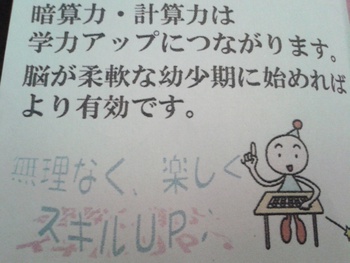 暗算力・計算力は
学力アップにつながります。
脳が柔軟な幼少期に始めれば
より有効です。
無理なく、楽しく
スキルUP